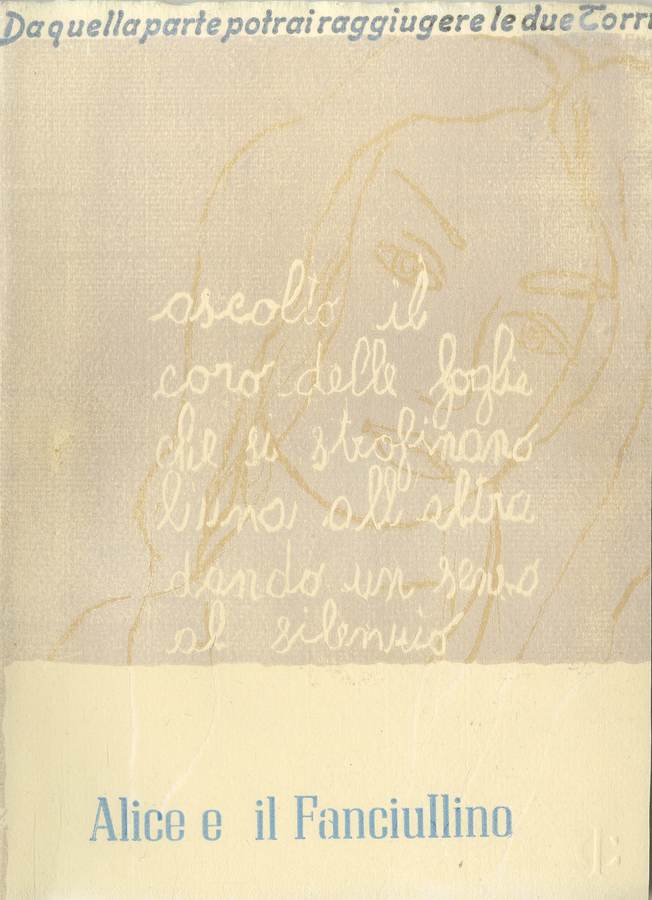 Da quella parte potrai raggiugere le due Torri
ascolto il
coro delle foglie
che si strofinano
l'una all'altra
dando un senso
al silenzio
Alice e il Fanciullino